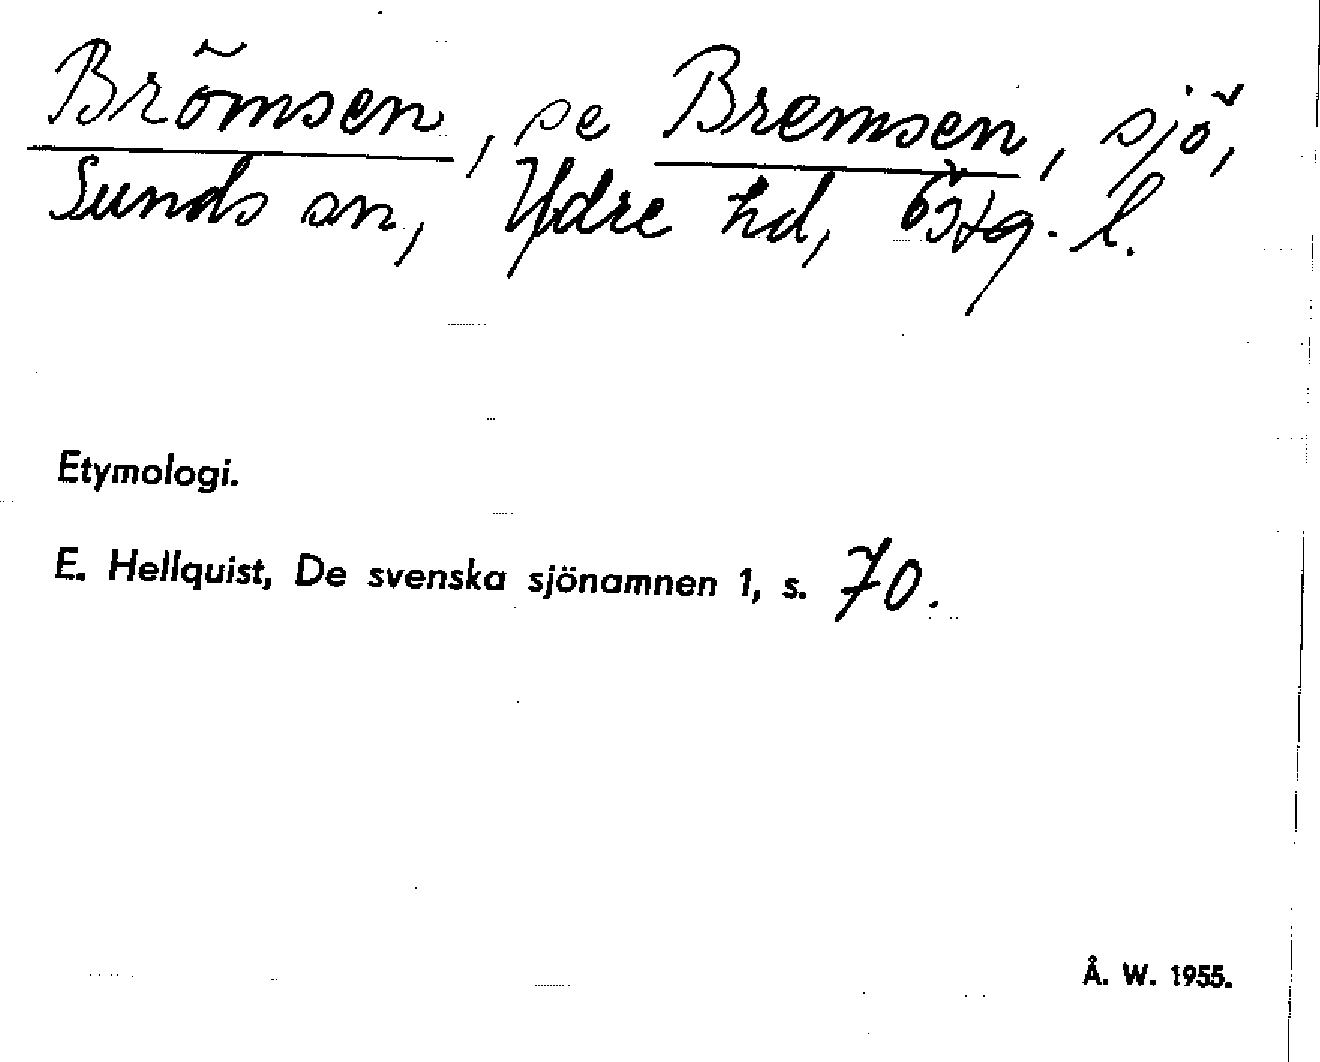 Brömsen, se Bremsen, sjö,
Sunds sn, Ydre hd, Östg. l.
Etymologi.
E. Hellquist, De svenska sjönamnen 1, s. 70.
Å. W. 1955.